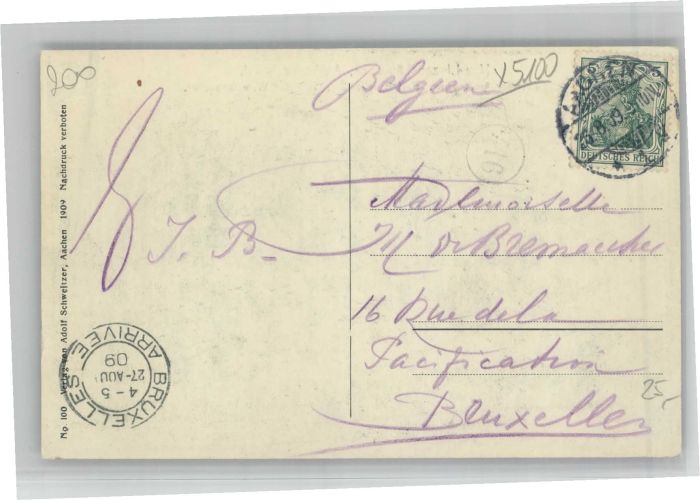 200
x5100
Belgien
DEUTSCHES REICH
J. B.
Mademoiselle
M de
16 Rue de la
Pacification
Bruxelles
25,-
BRUXELLES
4-5
27-AOU
09
ARRIVÉE
No. 100 Verlag von Adolf Schweitzer, Aachen 1909 Nachdruck verboten